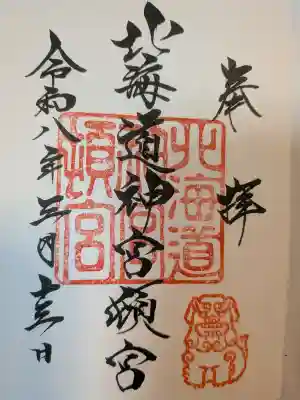 奉拝
北海道神宮頓宮
北海道神宮頓宮
令和八年三月十三日